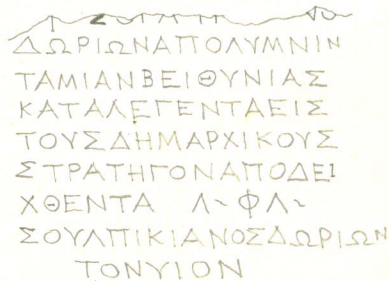 ΔΩΡΙΩΝΑΠΟΛΥΜΝΙΝ
ΤΑΜΙΑΝΒΕΙΘΥΝΙΑΣ
ΚΑΤΑΛΕΓΕΝΤΑΕΙΣ
ΤΟΥΣΔΗΜΑΡΧΙΚΟΥΣ
ΣΤΡΑΤΗΓΟΝΑΠΟΔΕΙ
ΧΘΕΝΤΑ Λ~ ΦΛ~
ΣΟΥΛΠΙΚΙΑΝΟΣΔΩΡΙΩΝ
ΤΟΝΥΙΟΝ